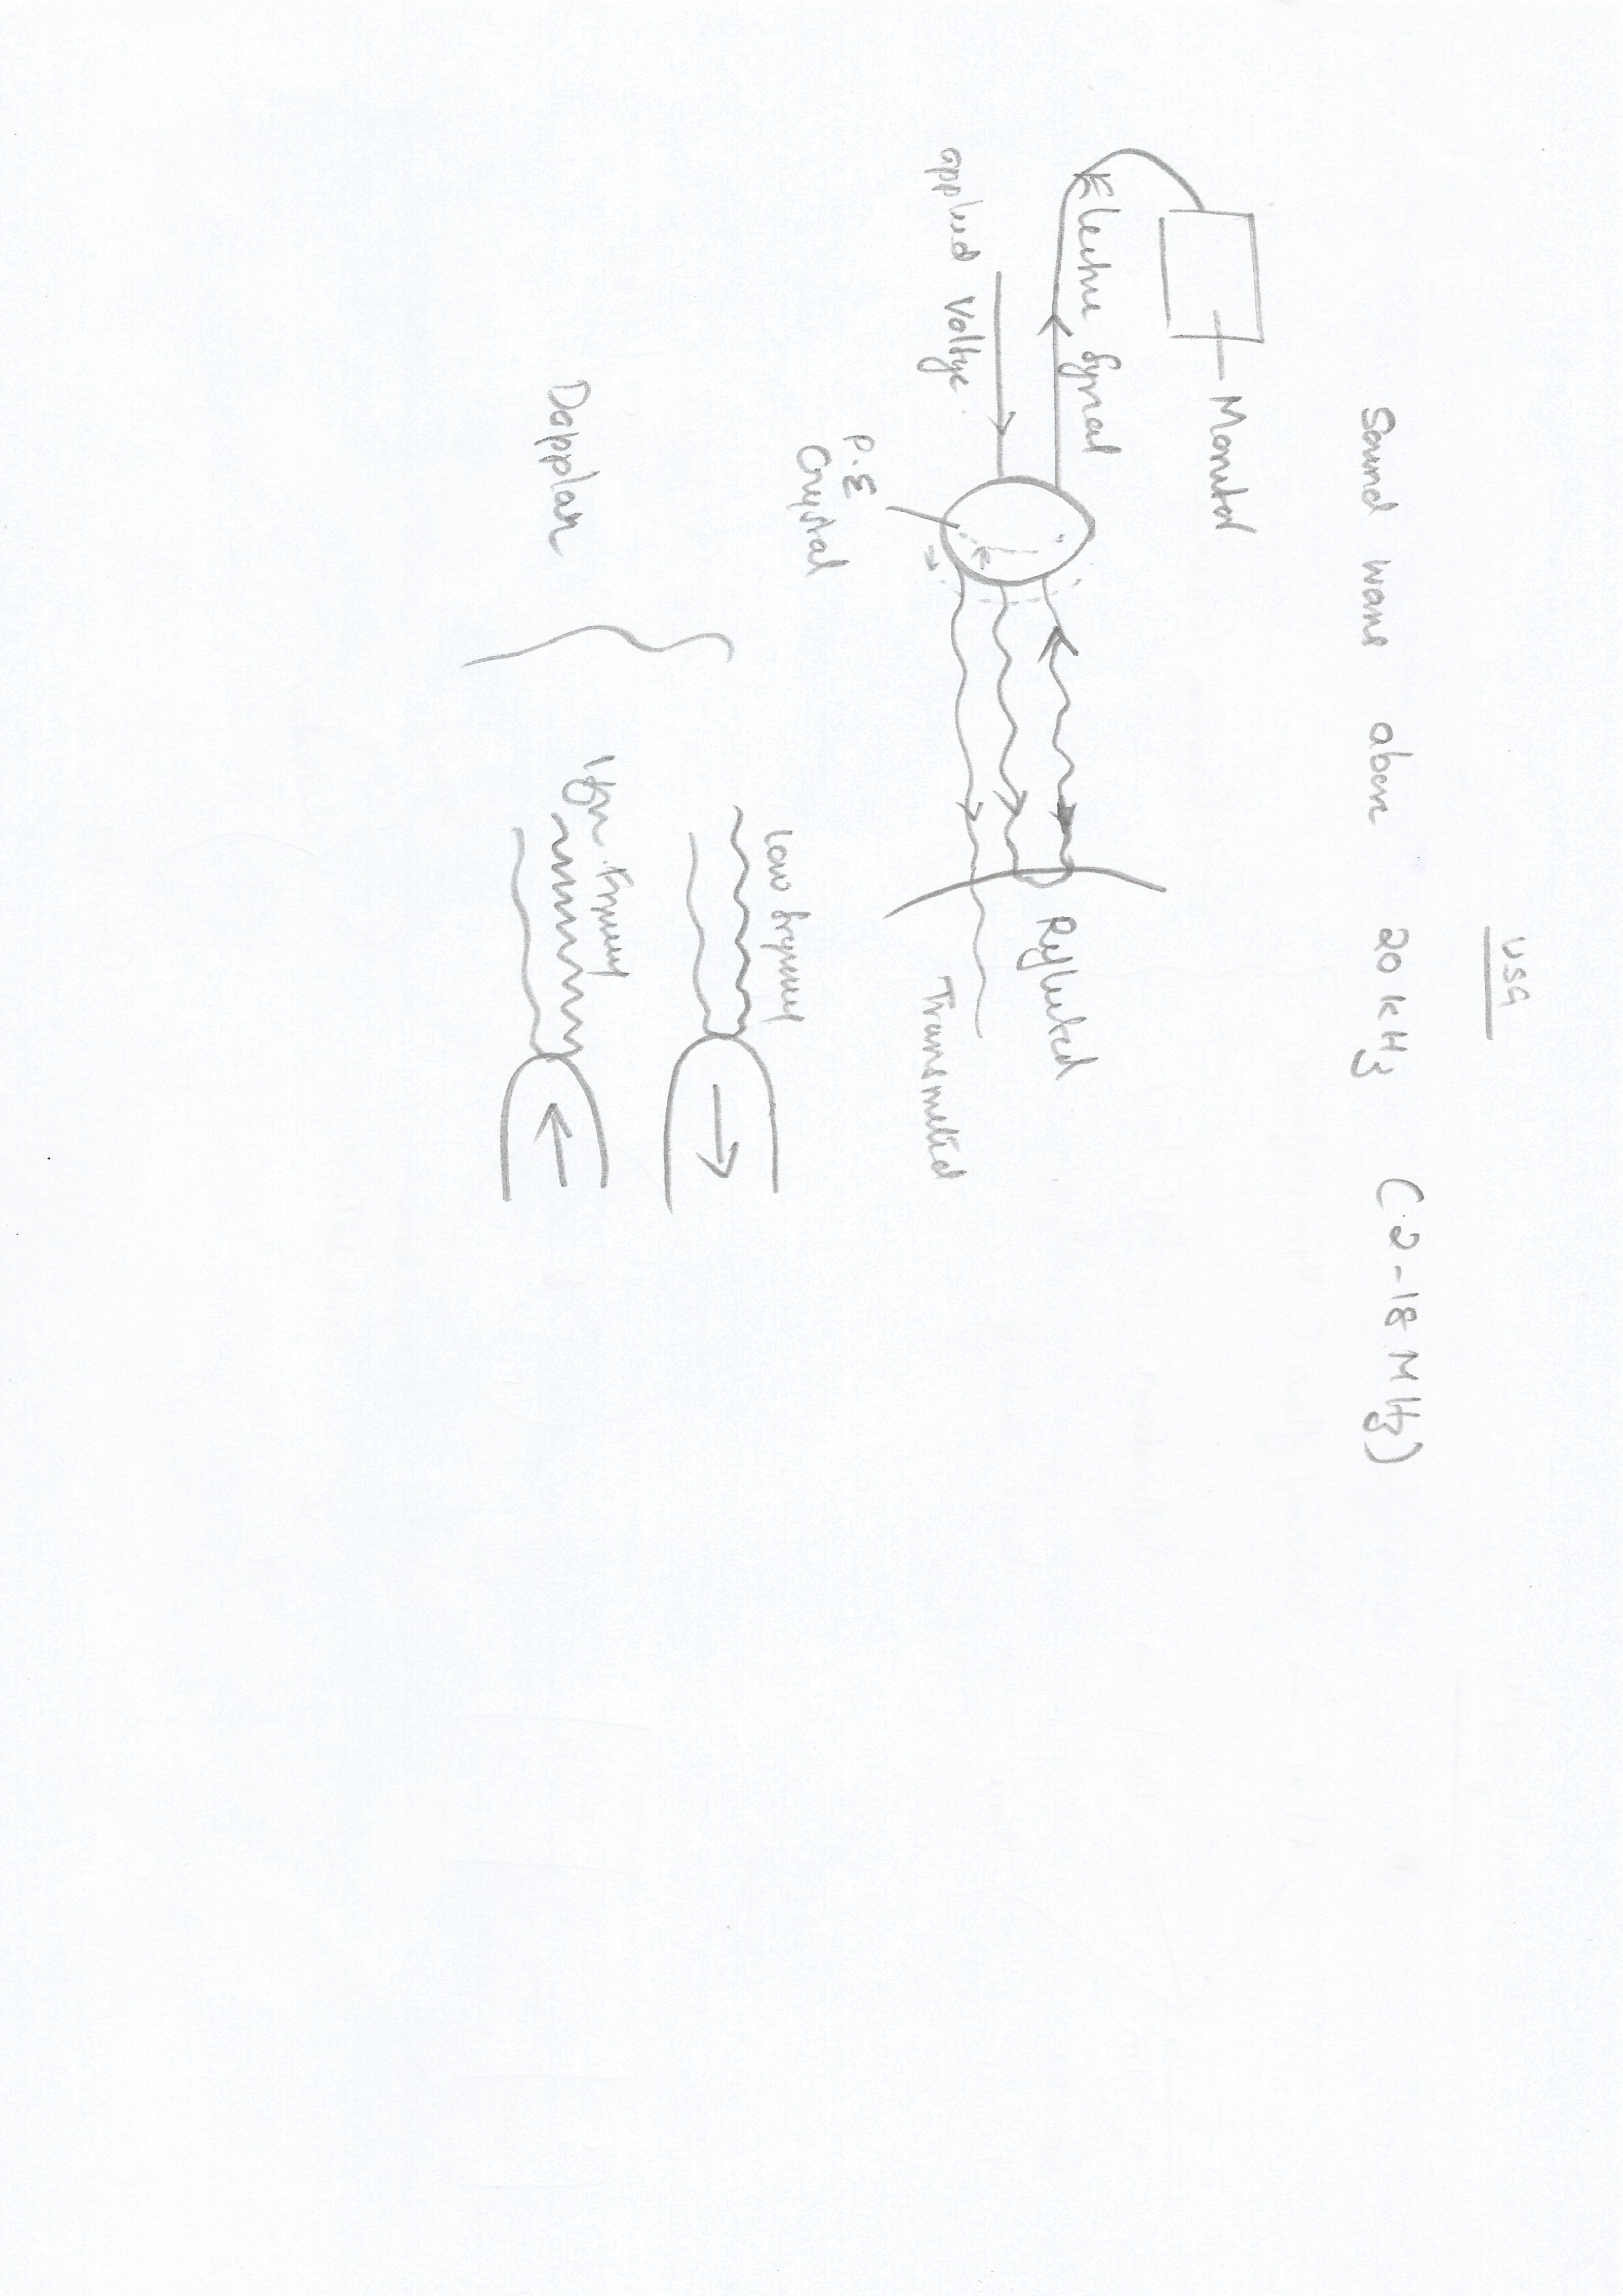 USG
Sound wave above 20 kHz (2-18 MHz)
Monitor
Electric Signal
applied Voltage
P.E
Crystal
Reflected
Transmitted
Dopplar
Low frequency
High Frequency